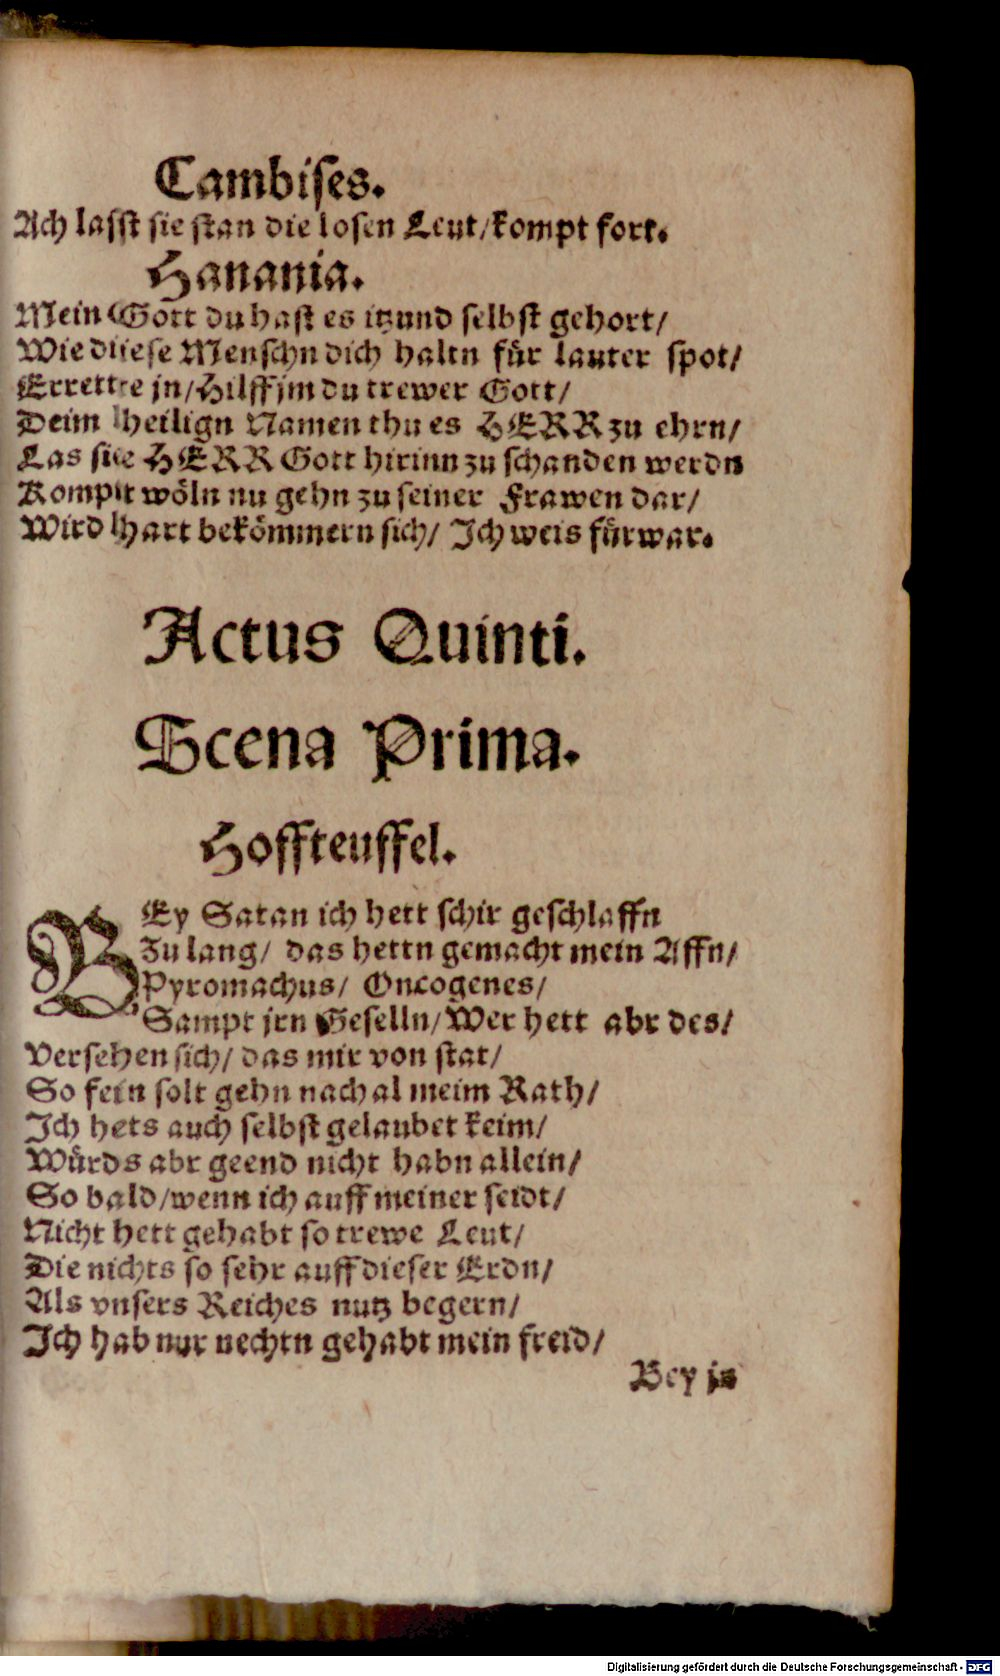 Cambises.
Ach lasst sie stan die losen Leut/kompt fort.
Hanania.
Mein Gott du hast es itzund selbst gehort/
Wie diese Menschn dich haltn für lauter spot/
Errette jn/Hilff jm du trewer Gott/
Deim heilign Namen thu es HERR zu ehrn/
Las sie HERR Gott hirinn zu schanden werdn
Kompt wöln nu gehn zu seiner Frawen dar/
Wird hart bekömmern sich/ Ich weis fürwar.
Actus Quinti.
Scena Prima.
Hoffteuffel.
BEy Satan ich hett schir geschlaffn
Zu lang/ das hettn gemacht mein Affn/
Pyromachus/ Oncogenes/
Sampt jrn Geselln/Wer hett abr des/
Versehen sich/ das mir von stat/
So fein solt gehn nach al meim Rath/
Ich hets auch selbst gelaubet keim/
Würds abr geend nicht habn allein/
So bald/wenn ich auff meiner seidt/
Nicht hett gehabt so trewe Leut/
Die nichts so sehr auff dieser Erdn/
Als vnsers Reiches nutz begern/
Ich hab nur nechtn gehabt mein freid/
Bey jn
Digitalisierung gefördert durch die Deutsche Forschungsgemeinschaft - DFG